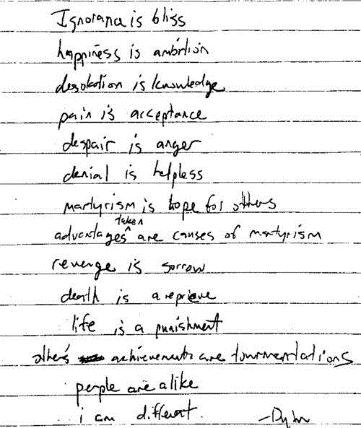 Ignorance is bliss
happiness is ambition
desolation is knowledge
pain is acceptance
despair is anger
denial is helpless
martyrism is hope for others
advantages taken are causes of martyrism
revenge is sorrow
death is a reprieve
life is a punishment
others achievements are tourmentations
people are alike
i am different. -Dylan